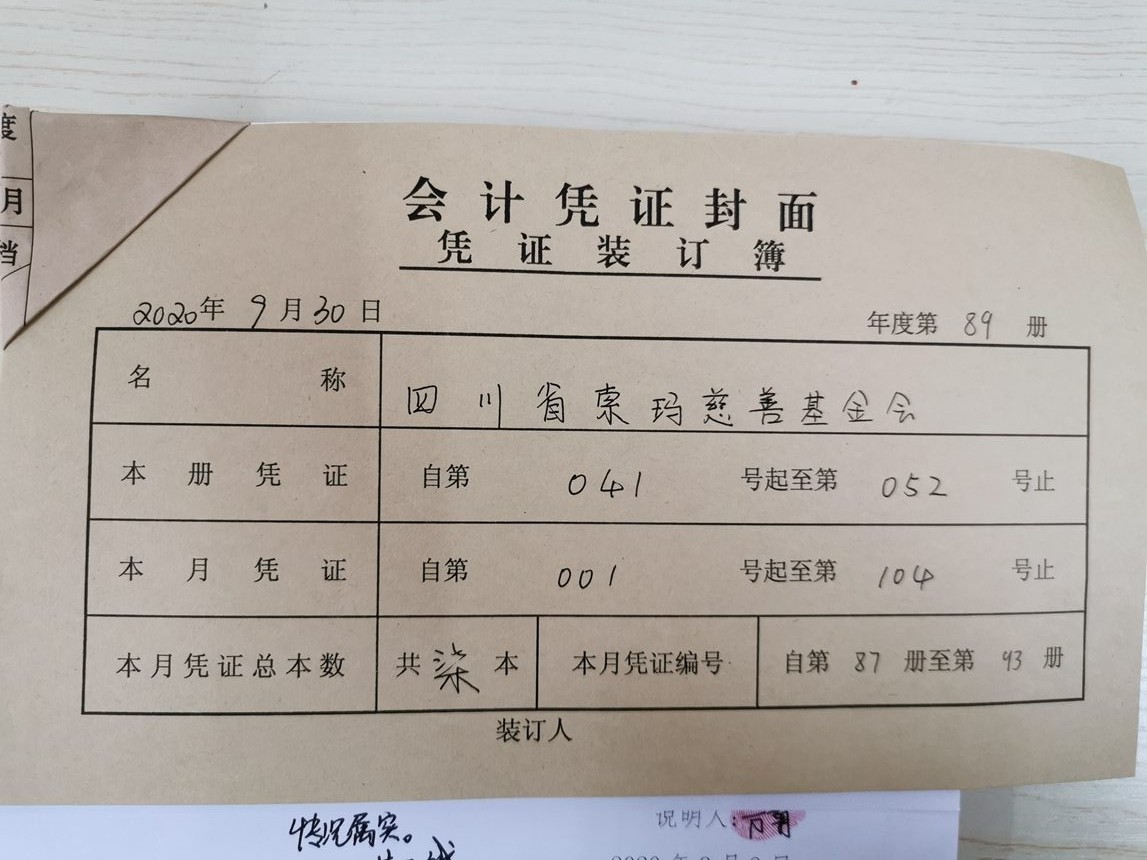 度
月
当
会计凭证封面
凭证装订簿
2020年 9月30日
年度第 89 册
名称 四川省索玛慈善基金会
本册凭证 自第 041 号起至第 052 号止
本月凭证 自第 001 号起至第 104 号止
本月凭证总本数 共 柒 本 本月凭证编号 自第 87 册至第 93 册
装订人
说明人:
情况属实。